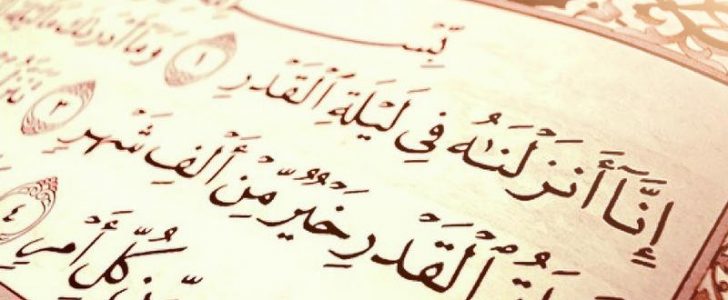 بِسْ
إِنَّآ أَنزَلْنَٰهُ فِي لَيْلَةِ ٱلْقَدْرِ ١ وَمَآ أَدْرَىٰكَ مَا لَيْلَةُ
ٱلْقَدْرِ خَيْرٌ مِّنْ أَلْفِ شَهْرٍ ٣
مِّن كُلِّ أَمْرٍ ٤